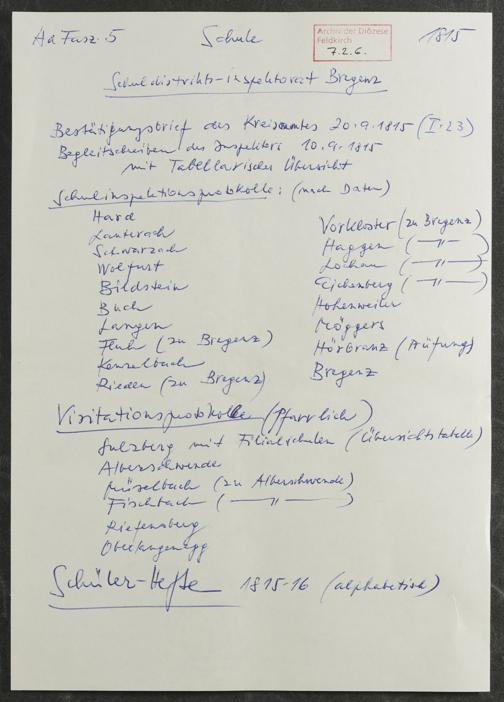 Aa Fasz. 5 Schule 1815
Archiv der Diözese
Feldkirch
7.2.6.
Schuldistrikts-inspektorat Bregenz
Bestätigungsbrief des Kreisamtes 20.9.1815 (I.23)
Begleitschreiben des Inspektors 10.9.1815
mit Tabellarischer Übersicht
Schulinspektionsprotokolle: (nach Daten)
Hard
Lauterach
Schwarzach
Wolfurt
Bildstein
Buch
Langen
Fluh (zu Bregenz)
Kennelbach
Rieden (zu Bregenz)
Vorkloster (zu Bregenz)
Haggen (—"—)
Lochau (—"—)
Eichenberg (—"—)
Hohenweiler
Möggers
Hörbranz (Prüfung)
Bregenz
Visitationsprotokolle (Pfarrlich)
Sulzberg mit Filialschulen (Übersichtstabelle)
Alberschwende
Müselbach (zu Alberschwende)
Fischbach (—"—)
Riefensberg
Oberlangenegg
Schüler-Hefte 1815-16 (alphabetisch)